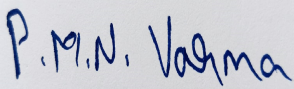 P.M.N. Varma